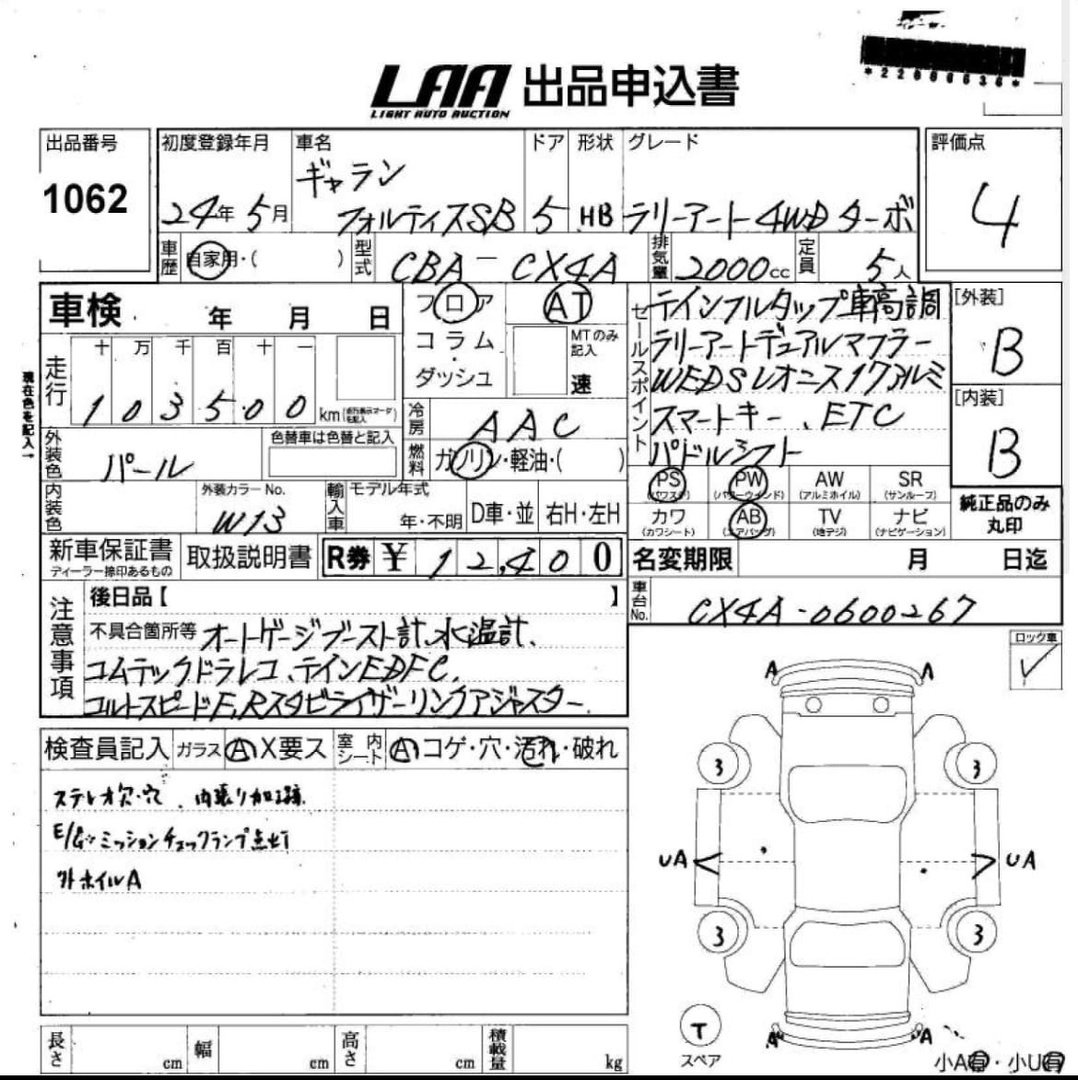 *22806636*
LAA 出品申込書
LIGHT AUTO AUCTION
出品番号
1062
初度登録年月
24年 5月
車名
ギャラン
フォルティスSB
ドア
5
形状
HB
グレード
ラリーアート4WDターボ
評価点
4
車歴
自家用・( )
型式
CBA-CX4A
排気量
2000cc
定員
5人
車検 年 月 日
フロア
コラム
・
ダッシュ
AT
MTのみ記入
速
セールスポイント
テインフルタップ車高調
ラリーアートデュアルマフラー
WEDSレオニス17アルミ
スマートキー、ETC
パドルシフト
[外装]
B
[内装]
B
現在色を記入→
走行
十 万 千 百 十 一
103500
km
冷房
AAC
燃料
ガソリン・軽油・( )
外装色
パール
色替車は色替と記入
内装色
外装カラーNo.
W13
輸入車
モデル年式
年・不明
D車・並
右H・左H
PS
(パワステ)
PW
(パワーウインド)
AW
(アルミホイル)
SR
(サンルーフ)
カワ
(カワシート)
AB
(エアバッグ)
TV
(地デジ)
ナビ
(ナビゲーション)
純正品のみ
丸印
新車保証書
ディーラー捺印あるもの
取扱説明書
R券 ¥ 12,400
名変期限 月 日迄
注意事項
後日品【 】
不具合箇所等 オートゲージブースト計、水温計、
コムテックドラレコ、テインEDFC、
コルトスピードF,Rスタビライザーリンクアジャスター
車台No.
CX4A-0600267
ロック車
検査員記入
ガラス A X要ス
室内シート A コゲ・穴・汚れ・破れ
ステレオ欠・穴、内張り加工跡
E/G・ミッションチェックランプ点灯
外ホイルA
A A
3 3
UA UA
3 3
T
スペア
A A
小A有・小U有
長さ cm
幅 cm
高さ cm
積載量 kg